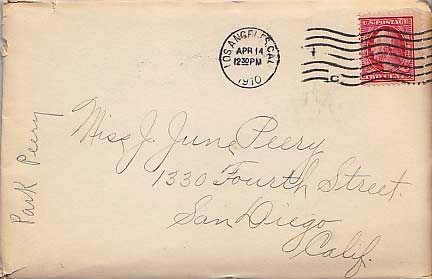 LOS ANGELES, CAL.
APR 14
12 30 PM
1910
U.S. POSTAGE
Miss J. June Peery
1330 Fourth Street.
San Diego
Calif.
Park Peery